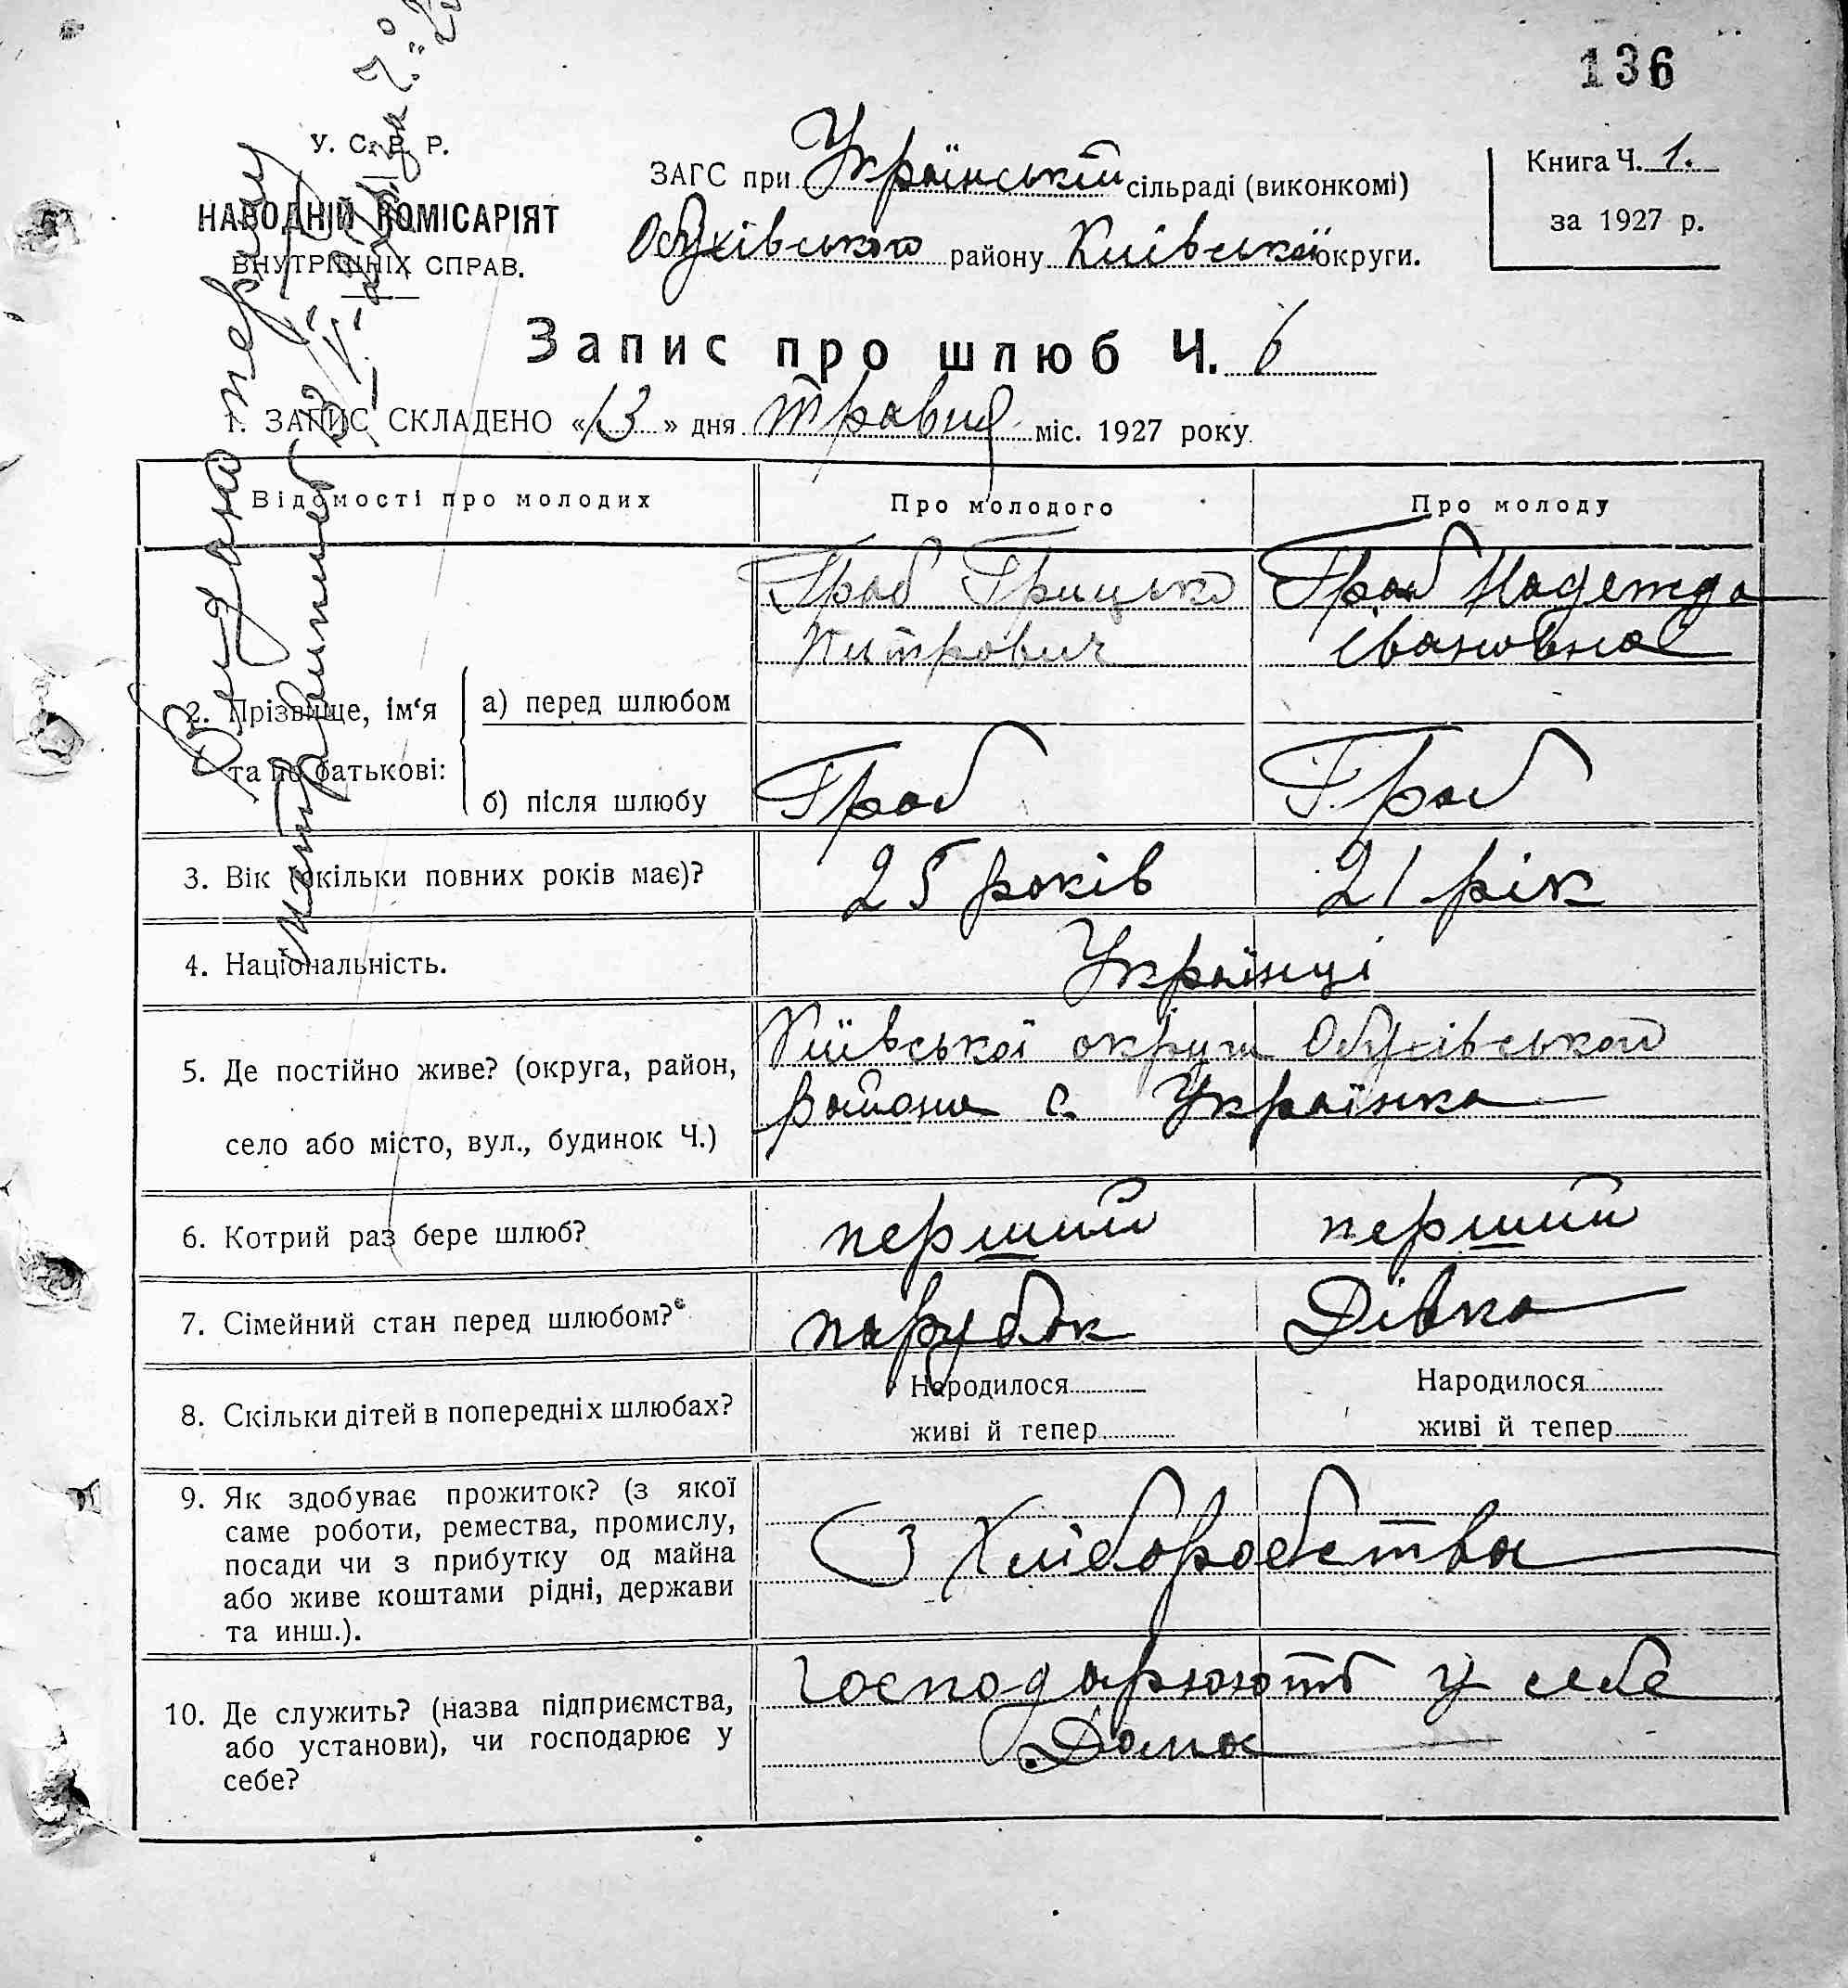 136
У. С. Р. Р.
НАРОДНІЙ КОМІСАРІЯТ
ВНУТРІШНІХ СПРАВ.
ЗАГС при Українській сільраді (виконкомі)
Обухівського району Київської округи.
Книга Ч. 1.
за 1927 р.
Запис про шлюб Ч. 6
1. ЗАПИС СКЛАДЕНО «13» дня травня міс. 1927 року.
Відомості про молодих
Про молодого
Про молоду
2. Прізвище, ім‘я та по батькові:
а) перед шлюбом
Граб Грицько
Питрович
Граб Надежда
Івановна
б) після шлюбу
Граб
Граб
3. Вік (скільки повних років має)?
25 років
21 рік
4. Національність.
Українці
5. Де постійно живе? (округа, район,
село або місто, вул., будинок Ч.)
Київської округи Обухівського
района с. Українка
6. Котрий раз бере шлюб?
перший
перший
7. Сімейний стан перед шлюбом?
парубок
Дівка
8. Скільки дітей в попередніх шлюбах?
Народилося
живі й тепер
Народилося
живі й тепер
9. Як здобуває прожиток? (з якої
саме роботи, ремества, промислу,
посади чи з прибутку од майна
або живе коштами рідні, держави
та инш.).
З Хліборобства
10. Де служить? (назва підприємства,
або установи), чи господарює у
себе?
господарюють у себе
Дома
Видано першу